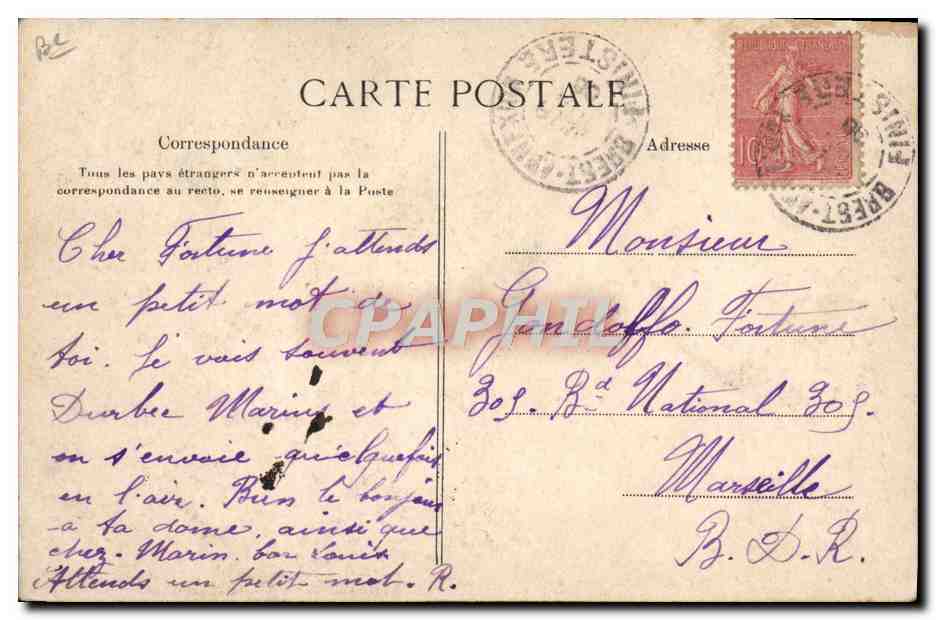 Be
CARTE POSTALE
Correspondance
Tous les pays étrangers n'acceptent pas la
correspondance au recto, se renseigner à la Poste
Cher Fortune J'attends
un petit mot de
toi. Je vois souvent
Durbec Marius et
on s'envoie quelquefois
en l'air. Bien le bonjour
a ta dame, ainsi que
chez Marin. bar Louis
Attends un petit mot. R.
Adresse
REPUBLIQUE FRANÇAISE
10
BREST
FINISTERE
BREST
FINISTERE
Monsieur
Gandolfo Fortune
309. Bd National 309.
Marseille
B. D. R.
CPAPHIL